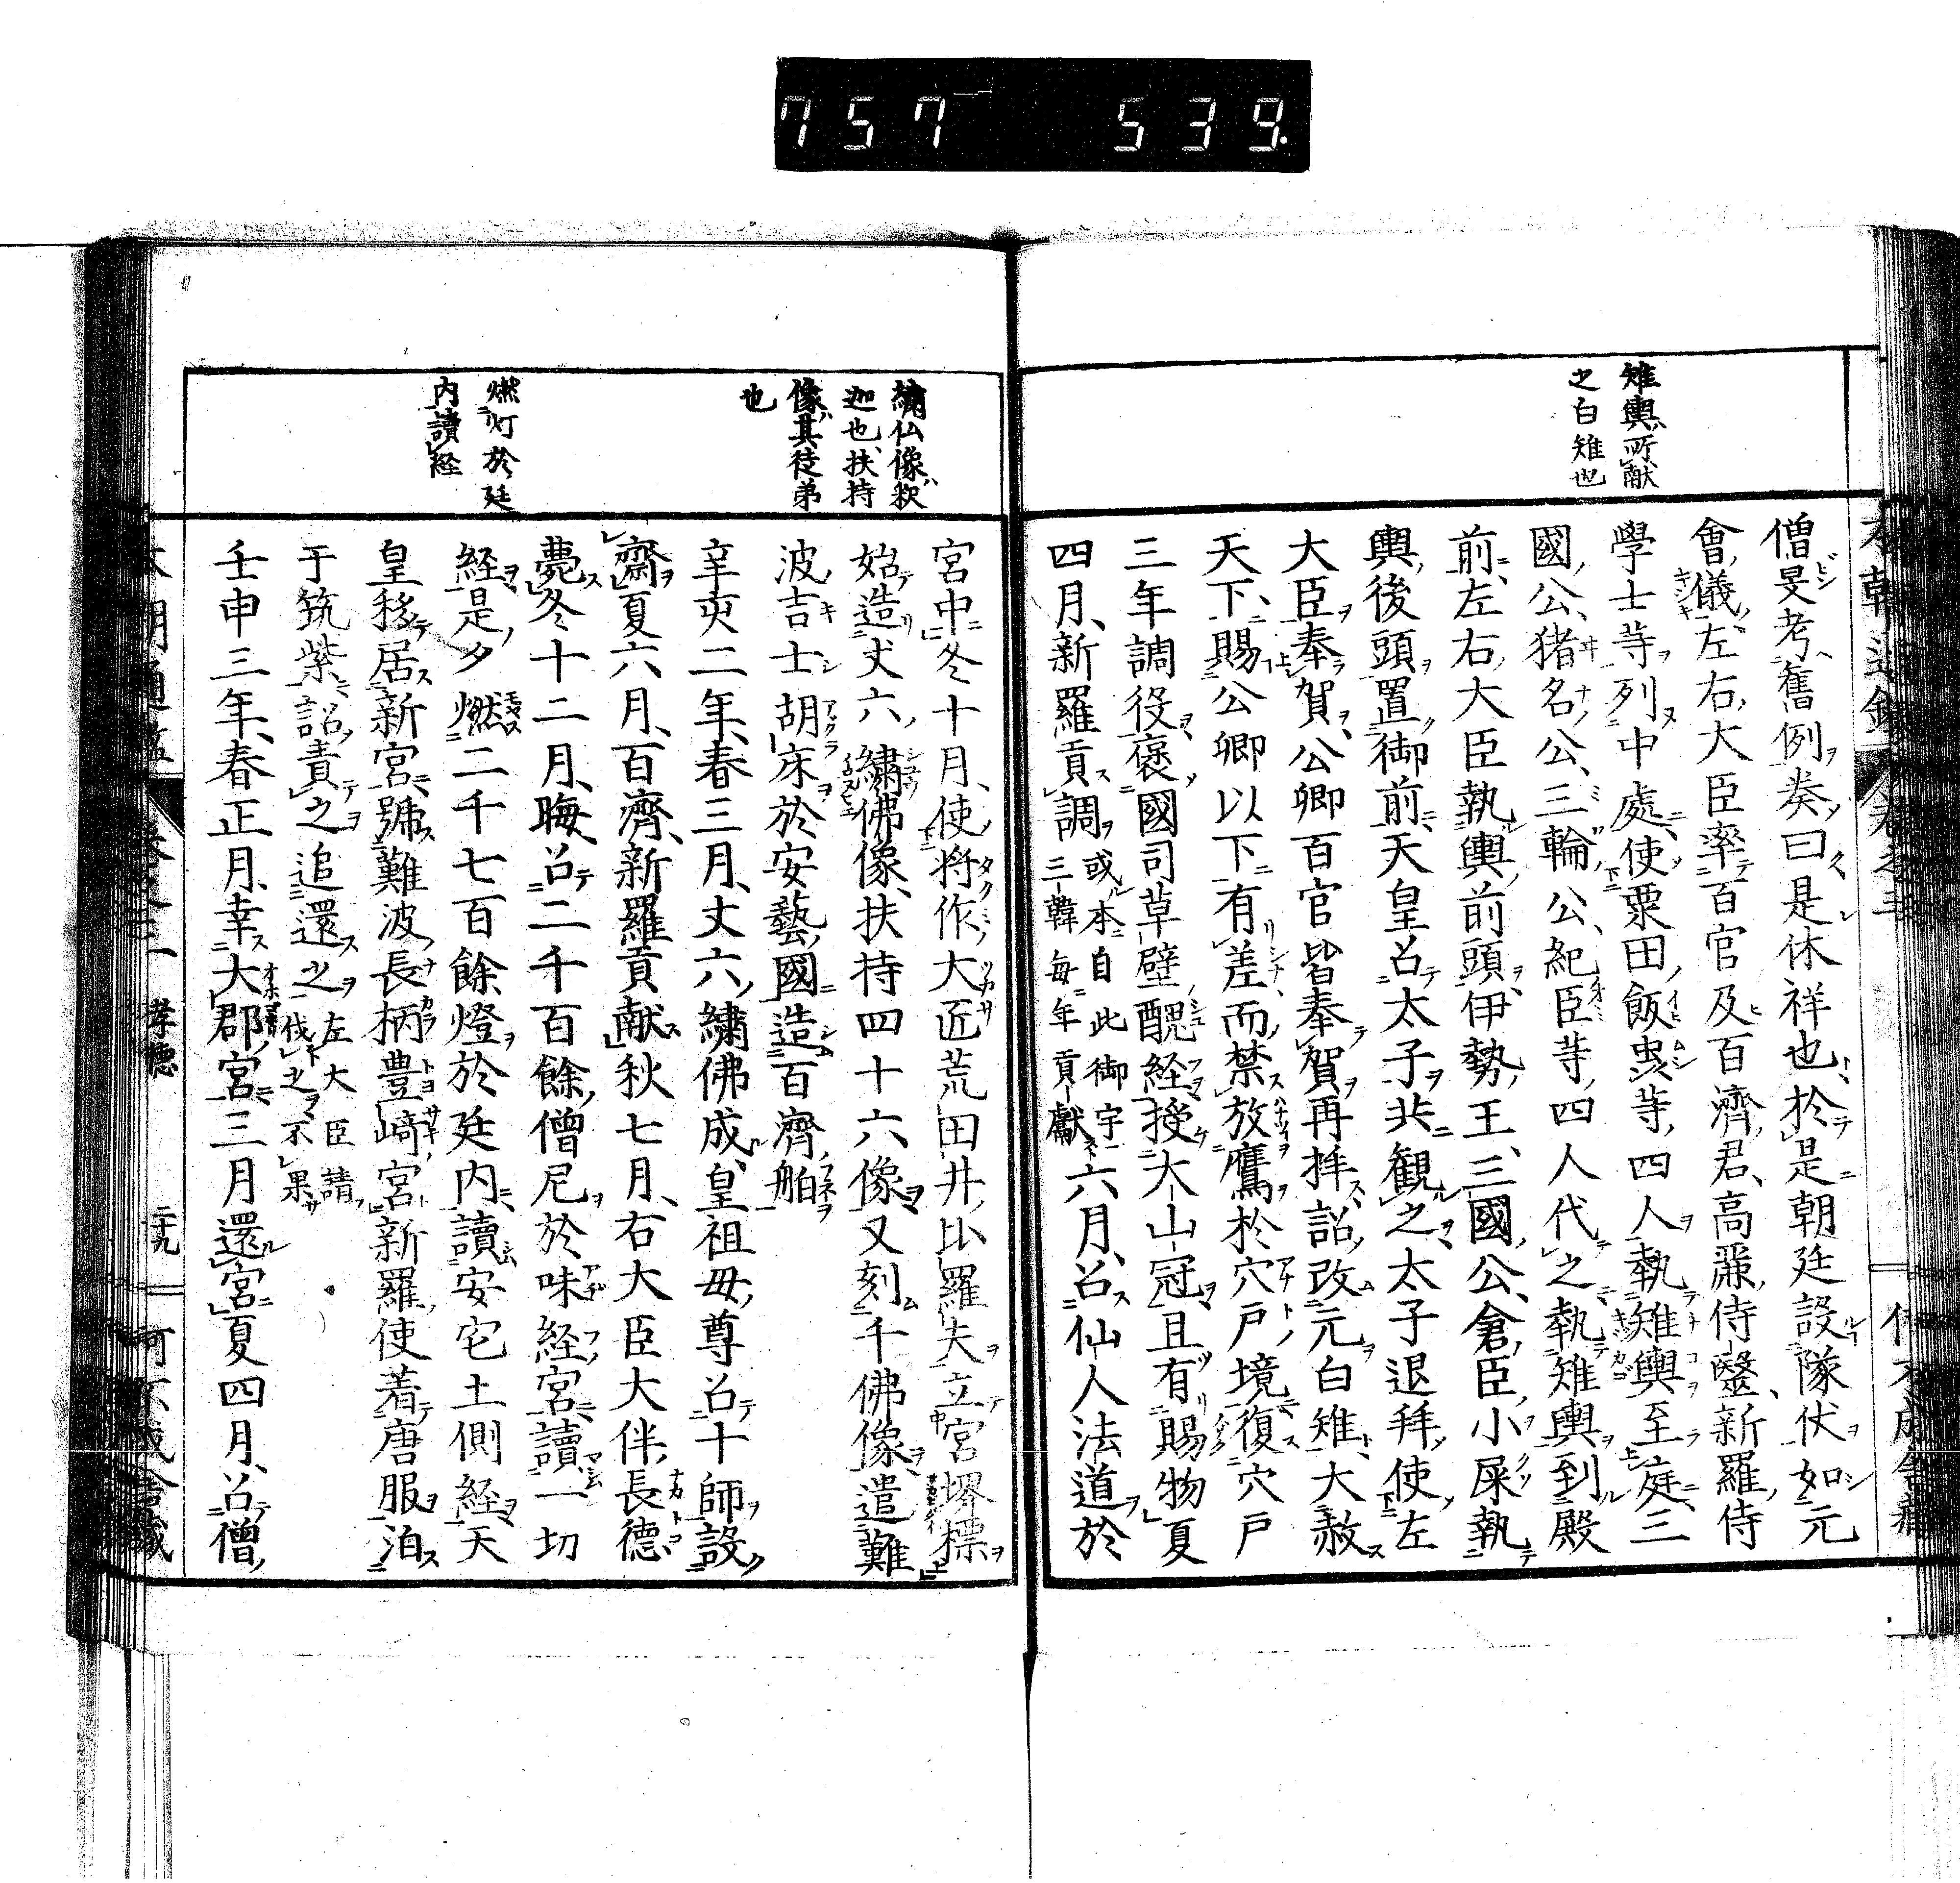 757 539.
雉輿、所献
之白雉也
僧旻考舊例奏曰是休祥也於是朝廷設隊伏如元
會儀左右大臣率百官及百濟君高麗侍醫新羅侍
學士等列中處使粟田飯虫等四人執雉輿至庭三
國公猪名公三輪公紀臣等四人代之執雉輿到殿
前左右大臣執輿前頭伊勢王三國公倉臣小屎執
輿後頭置御前天皇召太子共観之太子退拜使左
大臣奉賀公卿百官皆奉賀再拜詔改元白雉大赦
天下賜公卿以下有差而禁放鷹於穴戸境復穴戸
三年調役褒國司草壁醜経授大山冠且有賜物夏
四月新羅貢調或本自此御宇三韓每年貢獻六月召仙人法道於
繡仏像、釈
迦也、扶持
像、其徒弟
也
燃灯於廷
内讀経
宮中冬十月使将作大匠荒田井比羅夫立宮堺標
始造丈六繡佛像扶持四十六像又刻千佛像遣難
波吉士胡床於安藝國造百濟舶
辛亥二年春三月丈六繡佛成皇祖母尊召十師設
齋夏六月百濟新羅貢献秋七月右大臣大伴長德
薨冬十二月晦召二千百餘僧尼於味経宮讀一切
経是夕燃二千七百餘燈於廷内讀安宅土側経天
皇移居新宮號難波長柄豊﨑宮新羅使着唐服泊
于筑紫詔責之追還之左大臣請伐之不果
壬申三年春正月幸大郡宮三月還宮夏四月召僧
孝德
二十九